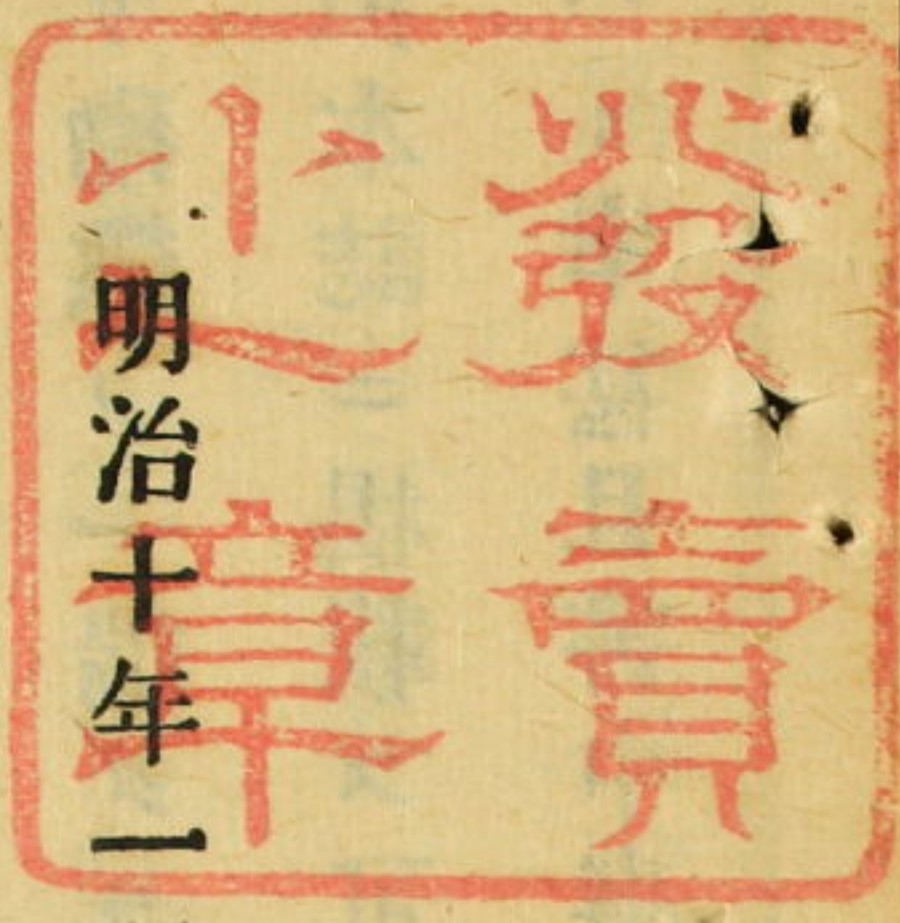 發賣
之章
明治十年一